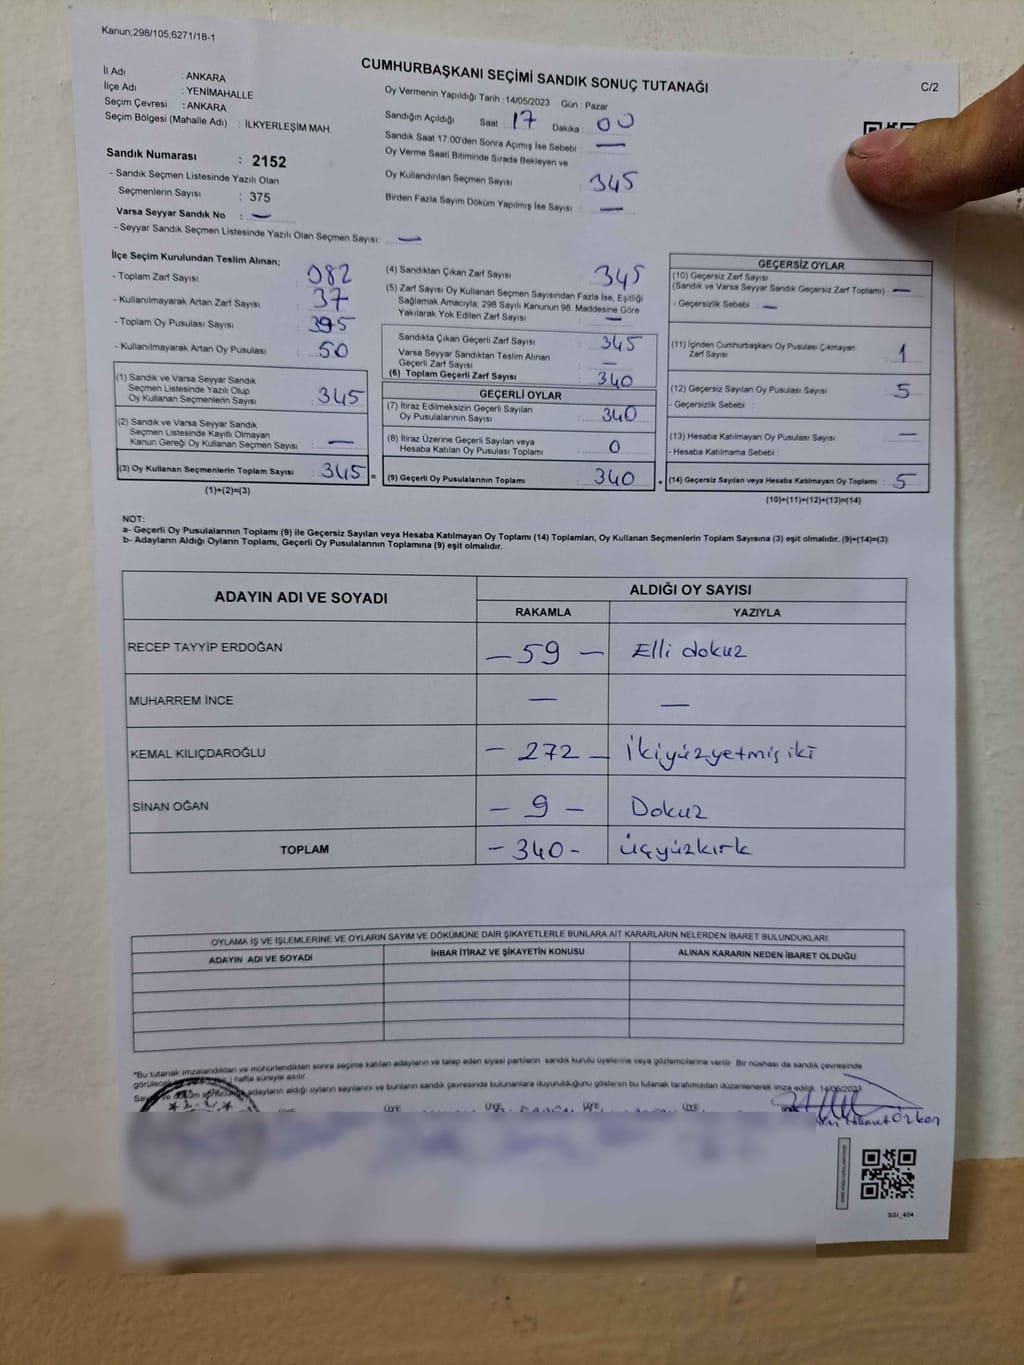 Kanun;298/105,6271/18-1
CUMHURBAŞKANI SEÇİMİ SANDIK SONUÇ TUTANAĞI
C/2
İl Adı : ANKARA
İlçe Adı : YENİMAHALLE
Seçim Çevresi : ANKARA
Seçim Bölgesi (Mahalle Adı) : İLKYERLEŞİM MAH.
Sandık Numarası : 2152
- Sandık Seçmen Listesinde Yazılı Olan
Seçmenlerin Sayısı : 375
Varsa Seyyar Sandık No : —
- Seyyar Sandık Seçmen Listesinde Yazılı Olan Seçmen Sayısı: —
Oy Vermenin Yapıldığı Tarih : 14/05/2023 Gün : Pazar
Sandığın Açıldığı Saat : 17 Dakika : 00
Sandık Saat 17:00'den Sonra Açımış İse Sebebi : —
Oy Verme Saati Bitiminde Sırada Bekleyen ve
Oy Kullandırılan Seçmen Sayısı : 345
Birden Fazla Sayım Döküm Yapılmış İse Sayısı : —
İlçe Seçim Kurulundan Teslim Alınan;
- Toplam Zarf Sayısı : 082
- Kullanılmayarak Artan Zarf Sayısı : 37
- Toplam Oy Pusulası Sayısı : 395
- Kullanılmayarak Artan Oy Pusulası : 50
(1) Sandık ve Varsa Seyyar Sandık
Seçmen Listesinde Yazılı Olup
Oy Kullanan Seçmenlerin Sayısı : 345
(2) Sandık ve Varsa Seyyar Sandık
Seçmen Listesinde Kayıtlı Olmayan
Kanun Gereği Oy Kullanan Seçmen Sayısı : —
(3) Oy Kullanan Seçmenlerin Toplam Sayısı : 345 =
(1)+(2)=(3)
(4) Sandıktan Çıkan Zarf Sayısı : 345
(5) Zarf Sayısı Oy Kullanan Seçmen Sayısından Fazla İse, Eşitliği
Sağlamak Amacıyla; 298 Sayılı Kanunun 98. Maddesine Göre
Yakılarak Yok Edilen Zarf Sayısı : —
Sandıkta Çıkan Geçerli Zarf Sayısı : 345
Varsa Seyyar Sandıktan Teslim Alınan
Geçerli Zarf Sayısı : —
(6) Toplam Geçerli Zarf Sayısı : 340
GEÇERLİ OYLAR
(7) İtiraz Edilmeksizin Geçerli Sayılan
Oy Pusulalarının Sayısı : 340
(8) İtiraz Üzerine Geçerli Sayılan veya
Hesaba Katılan Oy Pusulası Toplamı : 0
(9) Geçerli Oy Pusulalarının Toplamı : 340 +
GEÇERSİZ OYLAR
(10) Geçersiz Zarf Sayısı
(Sandık ve Varsa Seyyar Sandık Geçersiz Zarf Toplamı) : —
- Geçersizlik Sebebi : —
(11) İçinden Cumhurbaşkanı Oy Pusulası Çıkmayan
Zarf Sayısı : 1
(12) Geçersiz Sayılan Oy Pusulası Sayısı : 5
- Geçersizlik Sebebi :
(13) Hesaba Katılmayan Oy Pusulası Sayısı : —
- Hesaba Katılmama Sebebi :
(14) Geçersiz Sayılan veya Hesaba Katılmayan Oy Toplamı : 5
(10)+(11)+(12)+(13)=(14)
NOT:
a- Geçerli Oy Pusulalarının Toplamı (9) ile Geçersiz Sayılan veya Hesaba Katılmayan Oy Toplamı (14) Toplamları, Oy Kullanan Seçmenlerin Toplam Sayısına (3) eşit olmalıdır. (9)+(14)=(3)
b- Adayların Aldığı Oyların Toplamı, Geçerli Oy Pusulalarının Toplamına (9) eşit olmalıdır.
ADAYIN ADI VE SOYADI
ALDIĞI OY SAYISI
RAKAMLA YAZIYLA
RECEP TAYYİP ERDOĞAN — 59 — Elli dokuz
MUHARREM İNCE — —
KEMAL KILIÇDAROĞLU — 272 — İkiyüzyetmiş iki
SİNAN OĞAN — 9 — Dokuz
TOPLAM — 340 — üçyüzkırk
OYLAMA İŞ VE İŞLEMLERİNE VE OYLARIN SAYIM VE DÖKÜMÜNE DAİR ŞİKAYETLERLE BUNLARA AİT KARARLARIN NELERDEN İBARET BULUNDUKLARI
ADAYIN ADI VE SOYADI İHBAR İTİRAZ VE ŞİKAYETİN KONUSU ALINAN KARARIN NEDEN İBARET OLDUĞU
*Bu tutanak imzalandıktan ve mühürlendikten sonra seçime katılan adayların ve talep eden siyasi partilerin sandık kurulu üyelerine veya gözlemcilerine verilir. Bir nüshası da sandık çevresinde
görülecek hafta süreyle asılır.
Sayım ve döküm adayların aldığı oyların sayılarını ve bunların sandık çevresinde bulunanlara duyurulduğunu gösteren bu tutanak tarafımızdan düzenlenerek imza edildi. 14/05/2023
ÜYE ÜYE ÜYE ÜYE ÜYE
Özkan
SSI_404